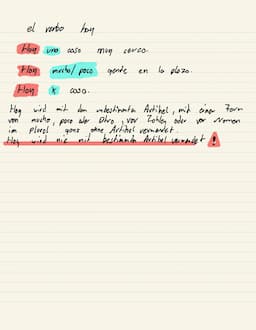 el verbo hay
Hay una casa muy cerca.
Hay mucha/poca gente en la plaza.
Hay x casa.
Hay wird mit dem unbestimmten Artikel, mit einer Form
von mucho, poco oder Otro, vor Zahlen oder vor Nomen
im plural ganz ohne Artikel verwendet.
Hay wird nie mit bestimmten Artikel verwendet !